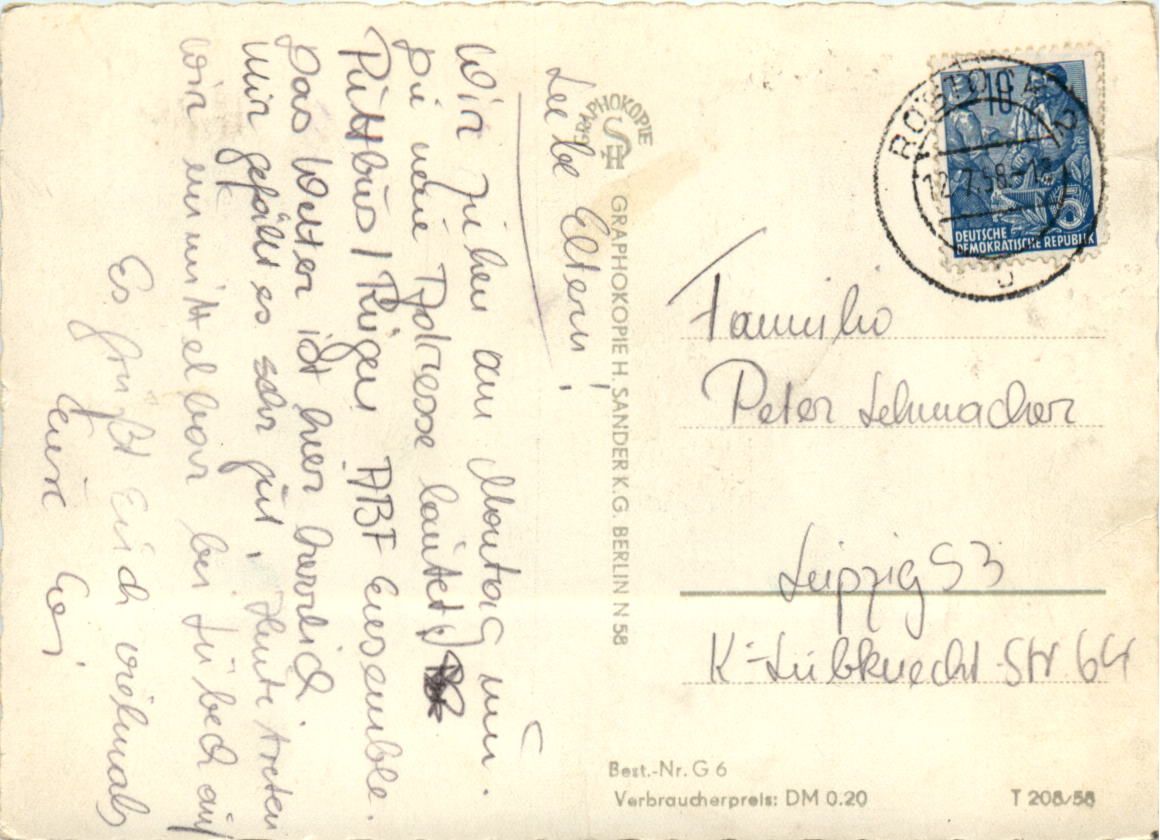 Liebe Eltern!
Wir ziehen am Montag um.
Die neue Adresse lautet:
Puttbus / Rügen ABF Ensemble.
Das Wetter ist hier herrlich.
Mir gefällt es sehr gut. Heute treten
wir unmittelbar bei Lübeck auf
Es grüßt Euch vielmals
Eure
GRAPHOKOPIE
SH
GRAPHOKOPIE H. SANDER K.G. BERLIN N 58
ROSTOCK
12.7.58
10
DEUTSCHE
DEMOKRATISCHE REPUBLIK
Familie
Peter Schumacher
Leipzig S3
K.-Liebknecht-Str. 64
Best.-Nr. G 6
Verbraucherpreis: DM 0.20
T 208/58